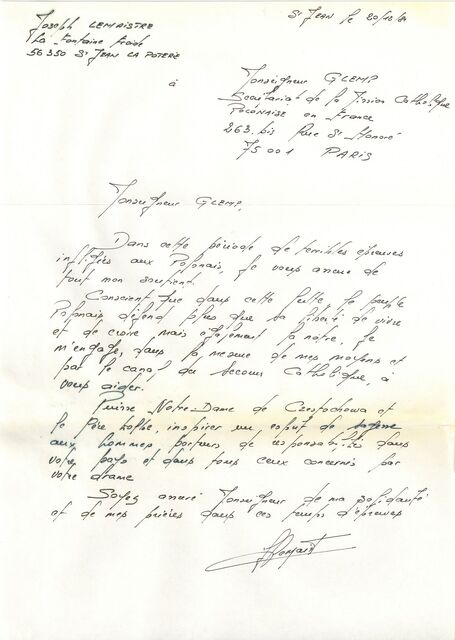 Joseph LEMAISTRE
La Fontaine Froide
56350 St JEAN LA POTERIE
St JEAN le 20/12/81
à
Monseigneur GLEMP
Secrétariat de la Mission Catholique
POLONAISE en France
263 bis Rue St Honoré
75001 PARIS
Monseigneur GLEMP,
Dans cette période de terribles épreuves
infligées aux Polonais, je vous assure de
tout mon soutien.
Conscient que dans cette lutte le peuple
Polonais défend plus que sa liberté de vivre
et de croire mais également la nôtre, je
m'engage, dans la mesure de mes moyens et
par le canal du Secours Catholique, à
vous aider.
Puisse Notre-Dame de Czestochowa et
le Père Kolbe, inspirer un esprit de sagesse
aux hommes porteurs de responsabilités dans
votre pays et dans tous ceux concernés par
votre drame
Soyez assuré Monseigneur de ma solidarité
et de mes prières dans ces temps d'épreuves